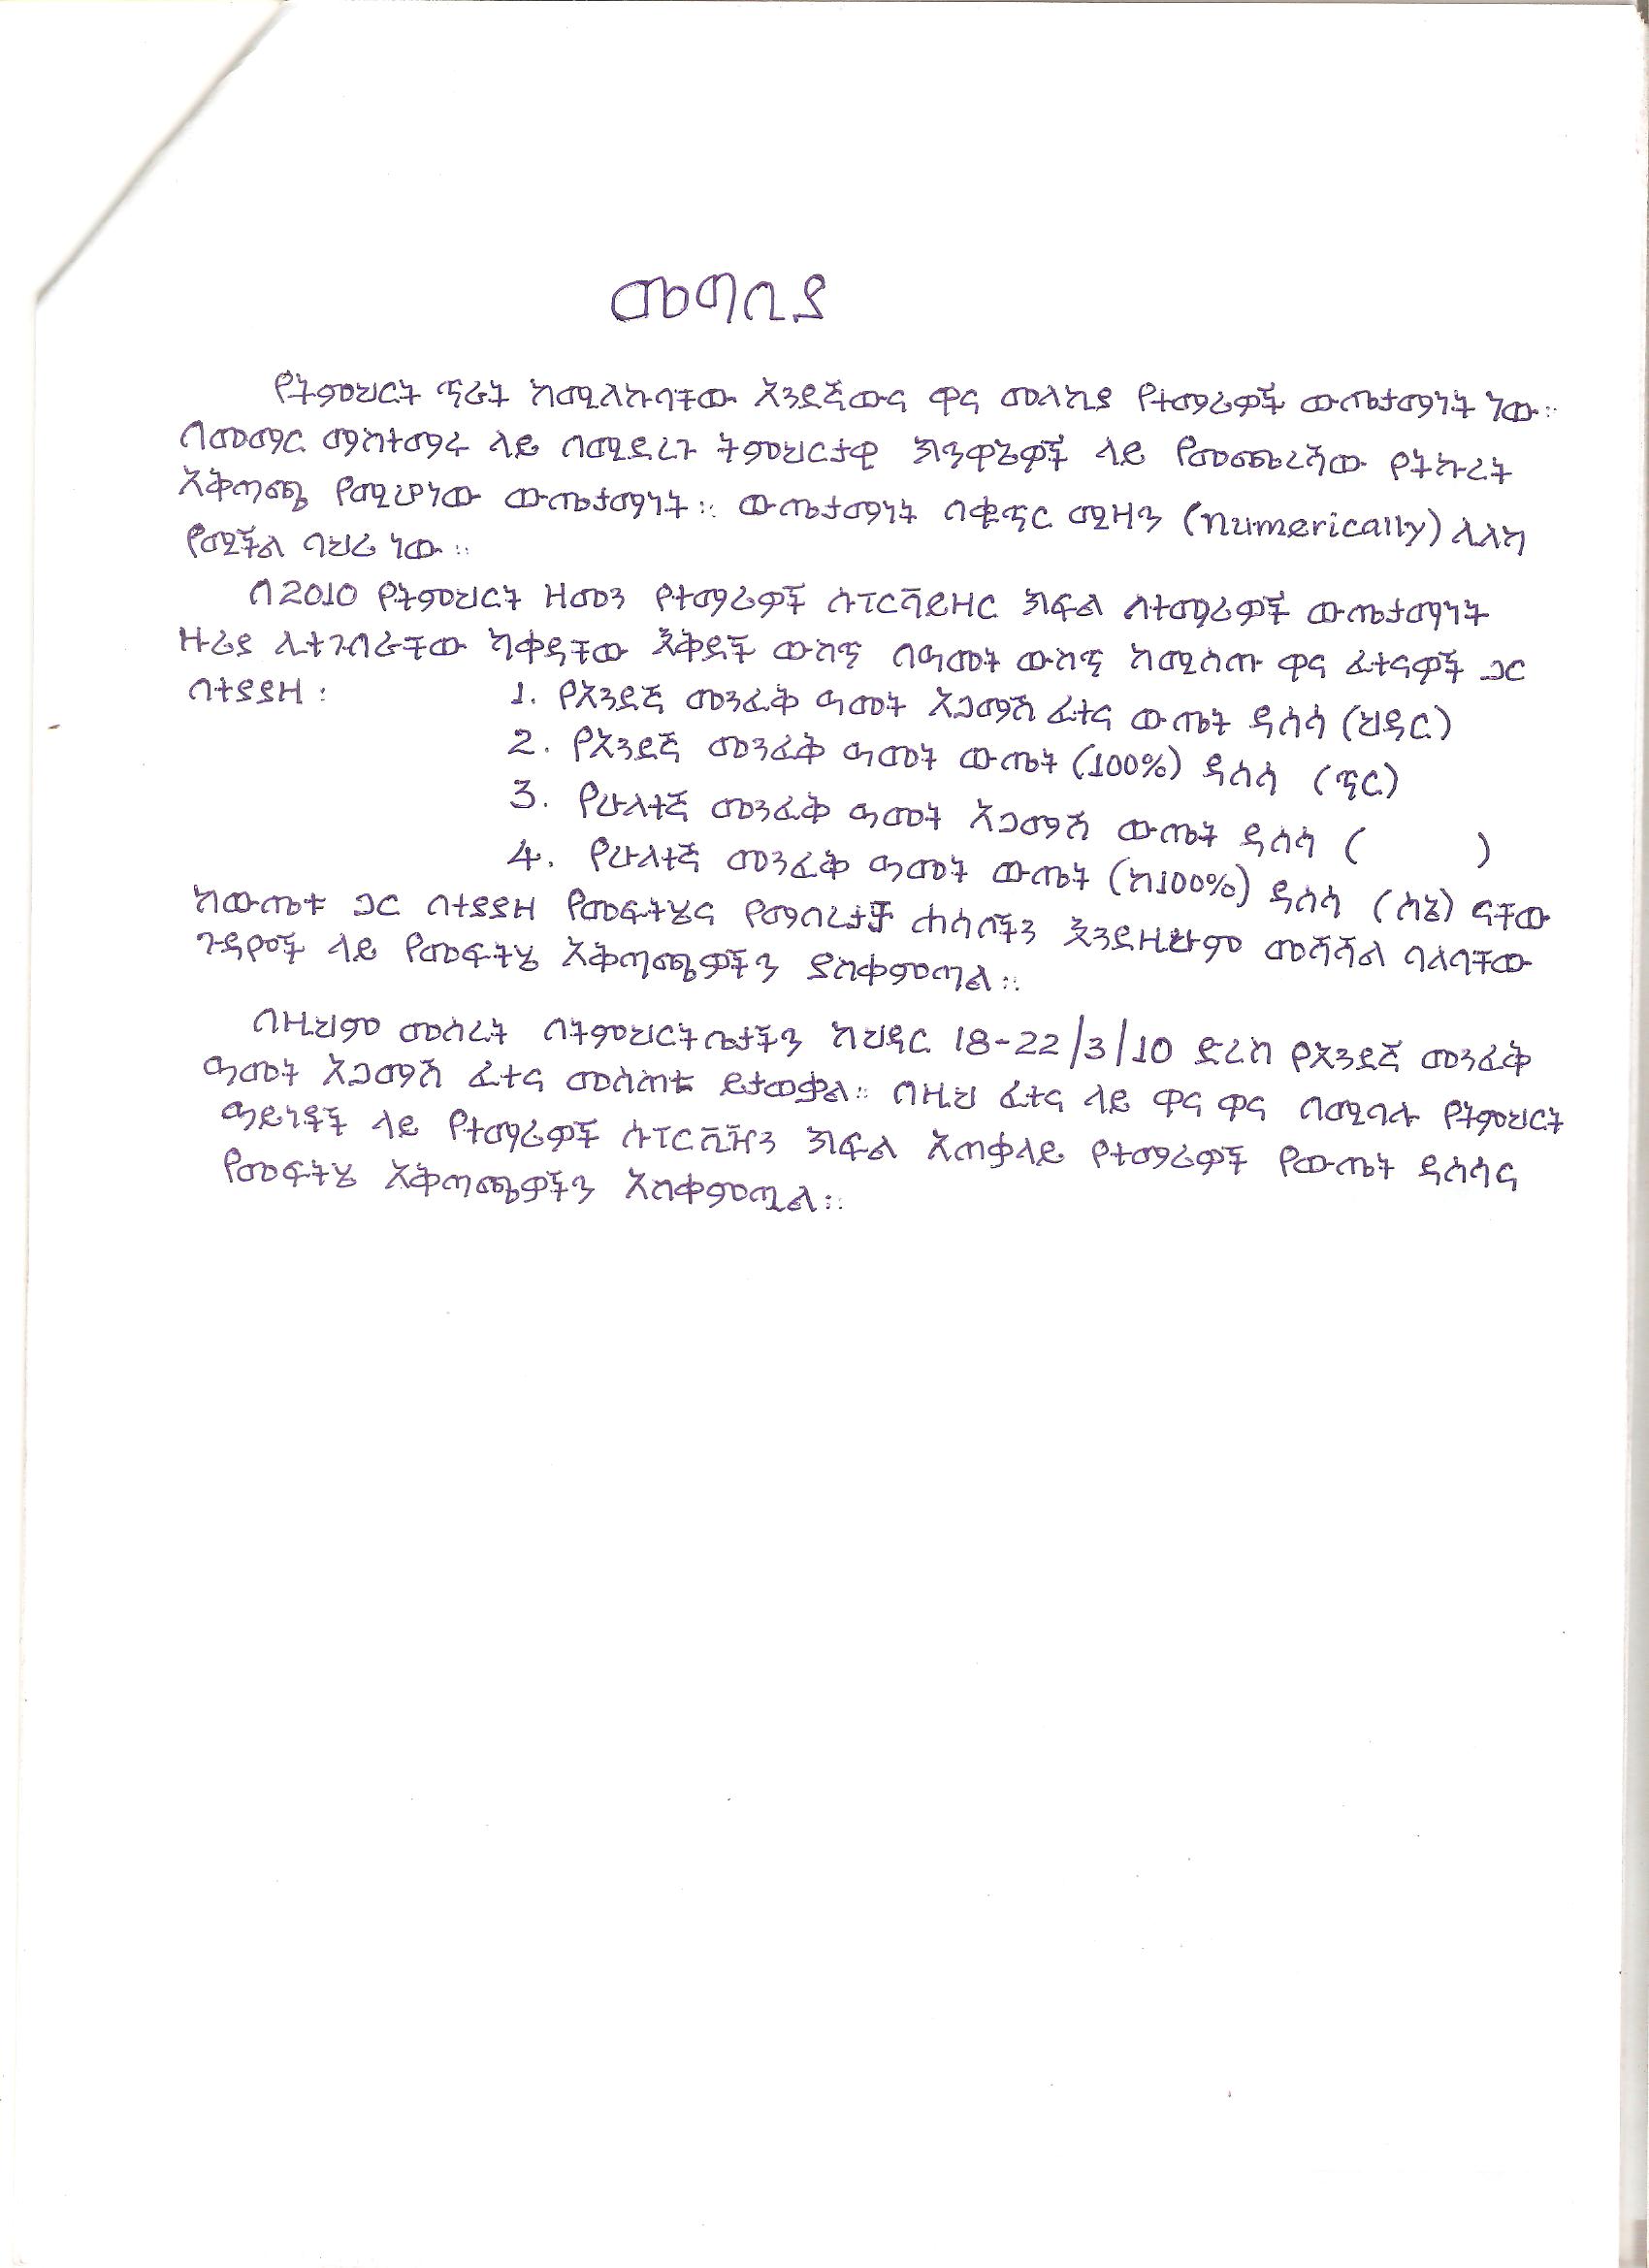 መግቢያ
የትምህርት ጥራት ከሚለኩባቸው አንደኛውና ዋና መለኪያ የተማሪዎች ውጤታማነት ነው።
በመማር ማስተማሩ ላይ በሚደረጉ ትምህርታዊ ክንዋኔዎች ላይ የመጨረሻው የትኩረት
አቅጣጫ የሚሆነው ውጤታማነት ። ውጤታማነት በቁጥር ሚዛን (numerically) ሊለካ
የሚችል ባህሪ ነው ።
በ2010 የትምህርት ዘመን የተማሪዎች ሱፐርቫይዘር ክፍል ስተማሪዎች ውጤታማነት
ዙሪያ ሊተገብራቸው ካቀዳቸው እቅዶች ውስጥ በዓመት ውስጥ ከሚሰጡ ዋና ፈተናዎች ጋር
በተያያዘ :
1. የአንደኛ መንፈቅ ዓመት አጋማሽ ፈተና ውጤት ዳሰሳ (ህዳር)
2. የአንደኛ መንፈቅ ዓመት ውጤት (100%) ዳሰሳ (ጥር)
3. የሁለተኛ መንፈቅ ዓመት አጋማሽ ውጤት ዳሰሳ ( )
4. የሁለተኛ መንፈቅ ዓመት ውጤት (ከ100%) ዳሰሳ (ሰኔ) ናቸው
ከውጤቱ ጋር በተያያዘ የመፍትሄና የማበረታቻ ሐሳቦችን እንደዚሁም መሻሻል ባለባቸው
ጉዳዮች ላይ የመፍትሄ አቅጣጫዎችን ያስቀምጣል ።
በዚህም መሰረት በትምህርት ቤታችን ከህዳር 18-22/3/10 ድረስ የአንደኛ መንፈቅ
ዓመት አጋማሽ ፈተና መሰጠቱ ይታወቃል። በዚህ ፈተና ላይ ዋና ዋና በሚባሉ የትምህርት
ዓይነቶች ላይ የተማሪዎች ሱፐርቪዥን ክፍል አጠቃላይ የተማሪዎች የውጤት ዳሰሳና
የመፍትሄ አቅጣጫዎችን አስቀምጧል ።